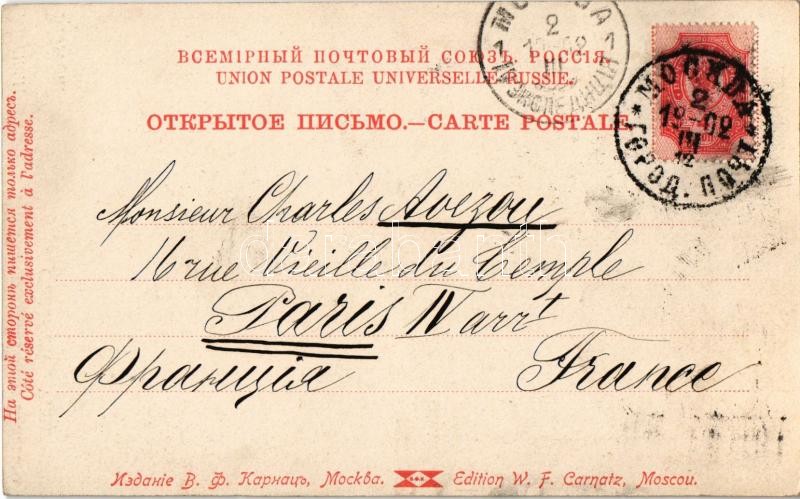 ВСЕМІРНЫЙ ПОЧТОВЫЙ СОЮЗЪ. РОССІЯ.
UNION POSTALE UNIVERSELLE. RUSSIE.
ОТКРЫТОЕ ПИСЬМО.—CARTE POSTALE.
МОСКВА
2
12-02
III
ЭКСПЕДИЦІЯ
МОСКВА
2
12-02
III
12
ГОРОД. ПОЧТА
Monsieur Charles Avezou
16 rue Vieille du Temple
Paris IV arrt
Франція France
На этой сторонѣ пишется только адресъ.
Côté réservé exclusivement à l'adresse.
Изданіе В. Ф. Карнацъ, Москва. Edition W. F. Carnatz, Moscou.